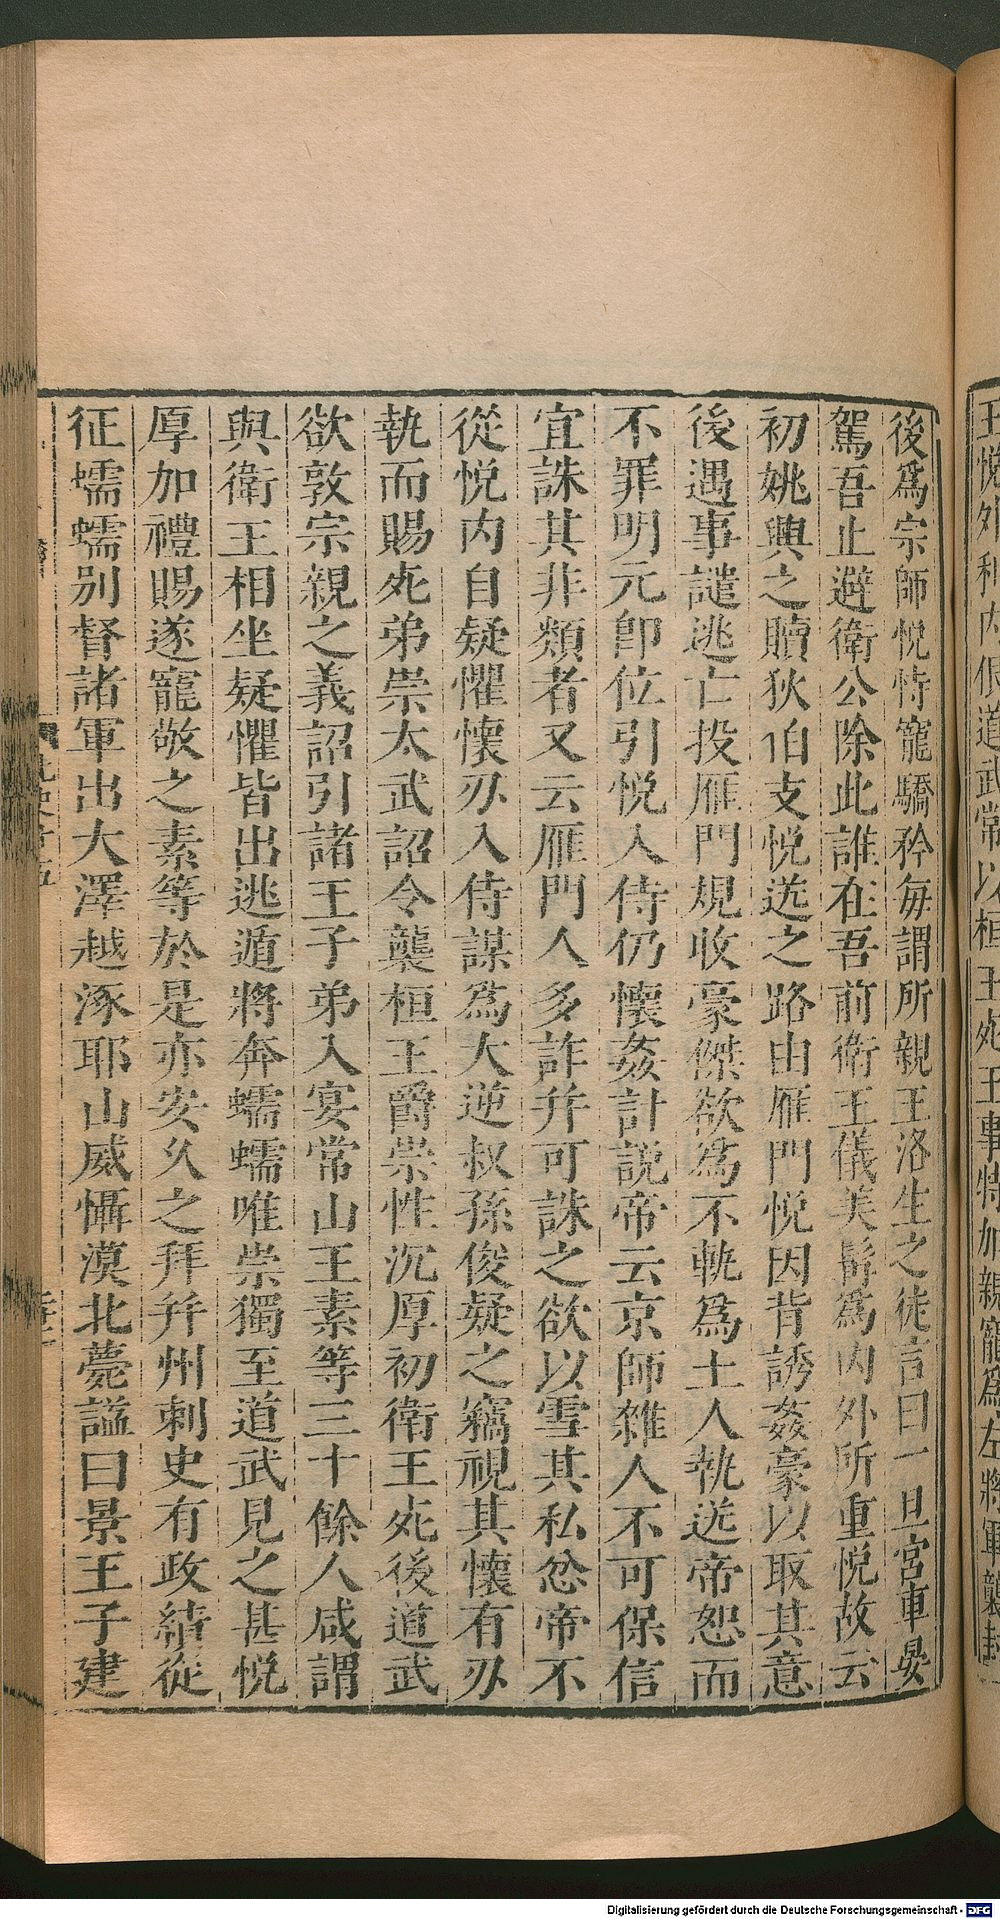 王悅外和内佷道武常以桓王死王事特加親寵爲左將軍襲封
後爲宗師悅恃寵驕矜每謂所親王洛生之徒言曰一旦宮車晏
駕吾止避衛公除此誰在吾前衛王儀美髯爲内外所重悅故云
初姚興之贖狄伯支悅送之路由雁門悅因背誘姦豪以取其意
後遇事譴逃亡投雁門規收豪傑欲爲不軌爲土人執送帝恕而
不罪明元卽位引悅入侍仍懷姦計説帝云京師雜人不可保信
宜誅其非類者又云雁門人多詐并可誅之欲以雪其私忿帝不
從悅内自疑懼懷刃入侍謀爲大逆叔孫俊疑之竊視其懷有刃
執而賜死弟崇太武詔令襲桓王爵崇性沉厚初衛王死後道武
欲敦宗親之義詔引諸王子弟入宴常山王素等三十餘人咸謂
與衛王相坐疑懼皆出逃遁將奔蠕蠕唯崇獨至道武見之甚悅
厚加禮賜遂寵敬之素等於是亦安久之拜并州刺史有政績從
征蠕蠕别督諸軍出大澤越涿耶山威懾漠北薨謚曰景王子建
Digitalisierung gefördert durch die Deutsche Forschungsgemeinschaft - DFG